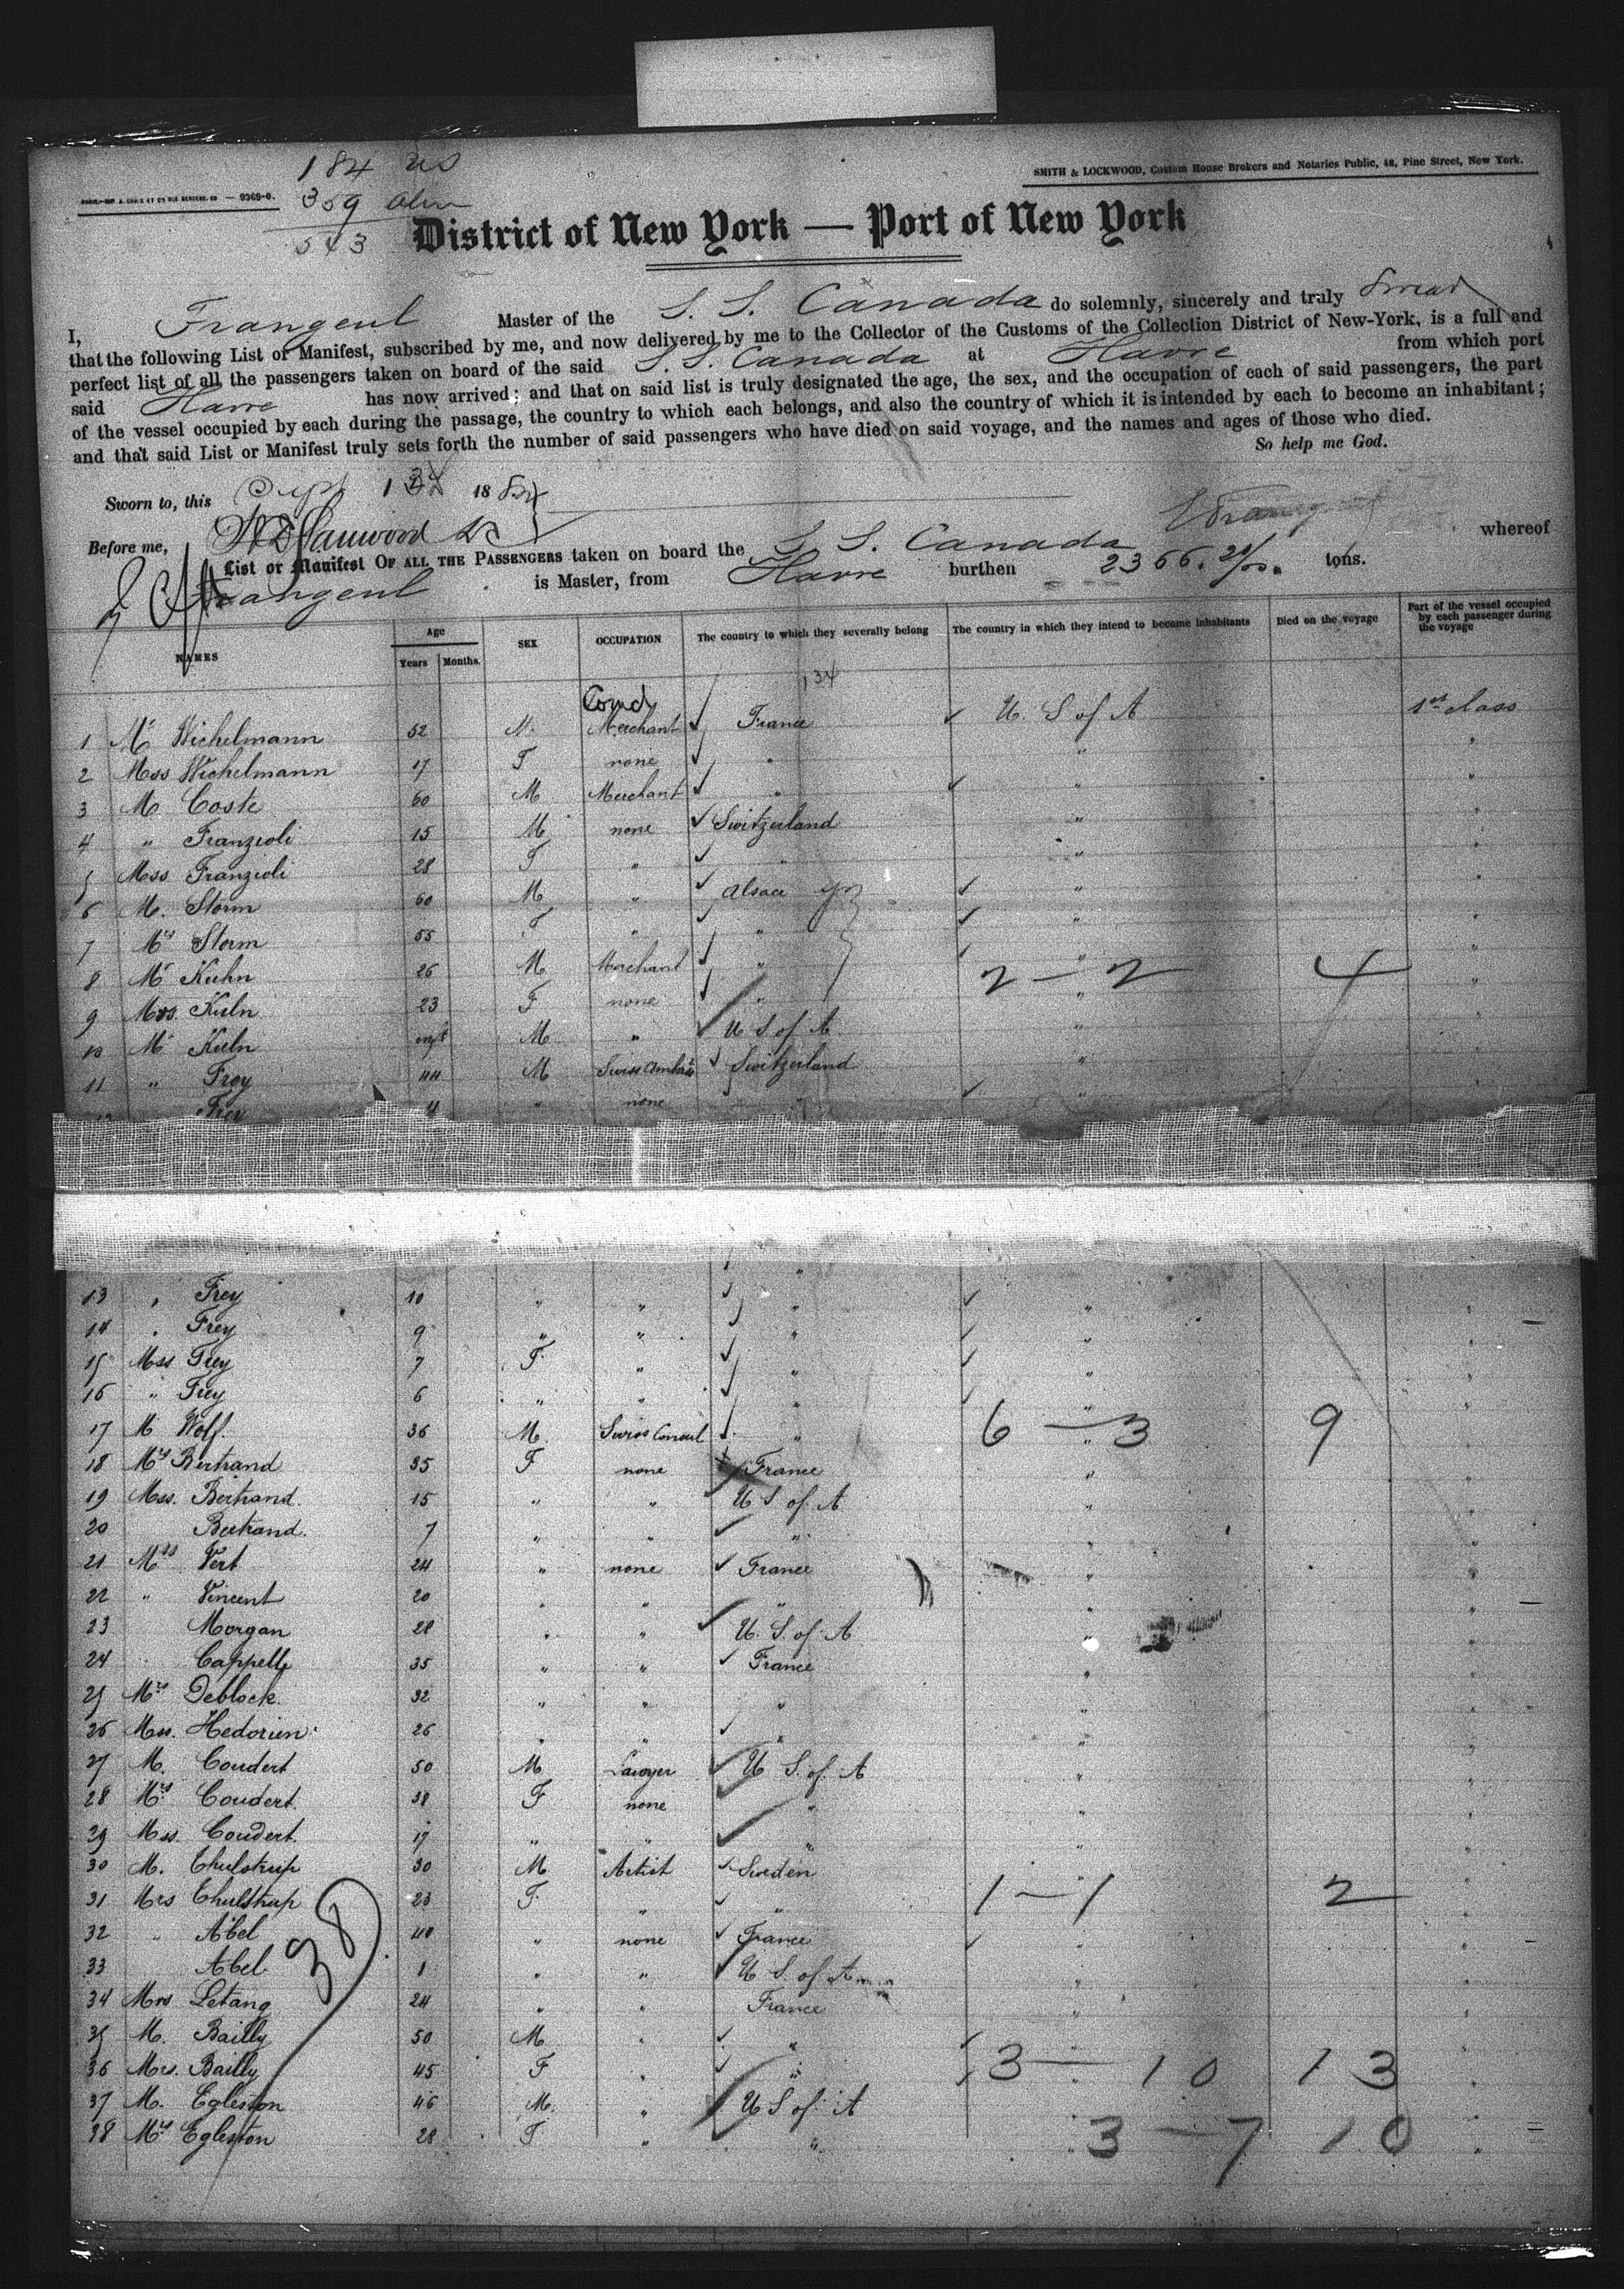 184 US
359 Alien
543
SMITH & LOCKWOOD, Custom House Brokers and Notaries Public, 48, Pine Street, New York.
District of New York — Port of New York
I, Frangeul Master of the S. S. Canada do solemnly, sincerely and truly Swear
that the following List or Manifest, subscribed by me, and now delivered by me to the Collector of the Customs of the Collection District of New-York, is a full and
perfect list of all the passengers taken on board of the said S. S. Canada at Havre from which port
said Havre has now arrived; and that on said list is truly designated the age, the sex, and the occupation of each of said passengers, the part
of the vessel occupied by each during the passage, the country to which each belongs, and also the country of which it is intended by each to become an inhabitant;
and that said List or Manifest truly sets forth the number of said passengers who have died on said voyage, and the names and ages of those who died.
So help me God.
Sworn to, this 18
Before me,
List or Manifest OF ALL THE PASSENGERS taken on board the S. S. Canada whereof
Frangeul is Master, from Havre burthen 2366. tons.
NAMES Age Years Months. SEX OCCUPATION The country to which they severally belong The country in which they intend to become inhabitants Died on the voyage Part of the vessel occupied by each passenger during the voyage
1 Mr Wichelmann 52 M. Merchant France U. S of A 1st class
2 Mss Wichelmann 17 F none " " "
3 M Coste 60 M Merchant " " "
4 " Franzioli 15 M none Switzerland " "
5 Mss Franzioli 28 F " " " "
6 M. Storm 60 M " Alsace " "
7 Mrs Storm 55 F " " " "
8 Mr Kuhn 26 M Merchant " " " 2 — 2 4
9 Mrs. Kuhn 23 F none " " "
10 Mr Kuhn M " U S of A " "
11 " Frey 44 M Switzerland " "
12 Frey none "
13 " Frey 10 " " " " "
14 " Frey 9 " " " " "
15 Mss Frey 7 F. " " " "
16 " Frey 6 " " " " "
17 M Wolf. 36 M. Swiss Consul " " " 6 — 3 9
18 Mrs Bertrand 35 F none France " "
19 Mss. Bertrand. 15 " " U S of A " "
20 Bertrand. 7 " " " " "
21 Mss Vert 24 " none France " "
22 " Vincent 20 " " " " "
23 Morgan 28 " " U. S. of A " "
24 Cappelle 35 " " France " "
25 Mrs Deblock. 32 " " " " "
26 Mss. Hedorien 26 " " " " "
27 M. Coudert 50 M Lawyer U S. of A " "
28 Mrs Coudert 38 F none " " "
29 Mss. Coudert. 17 " " " " "
30 M. Thulstrup 30 M Artist Sweden " "
31 Mrs Thulstrup 23 F. " " " " 1 — 1 2
32 " Abel 40 " none France " "
33 Abel 1 " " U S. of A " "
34 Mrs Letang 24 " " France " "
35 M. Bailly 50 M " " " "
36 Mrs. Bailly 45 F " " " " 3 — 10 13
37 M. Egleston 46 M. " U S of A " "
38 Mrs Egleston 28 F " " " " 3 — 7 10
38